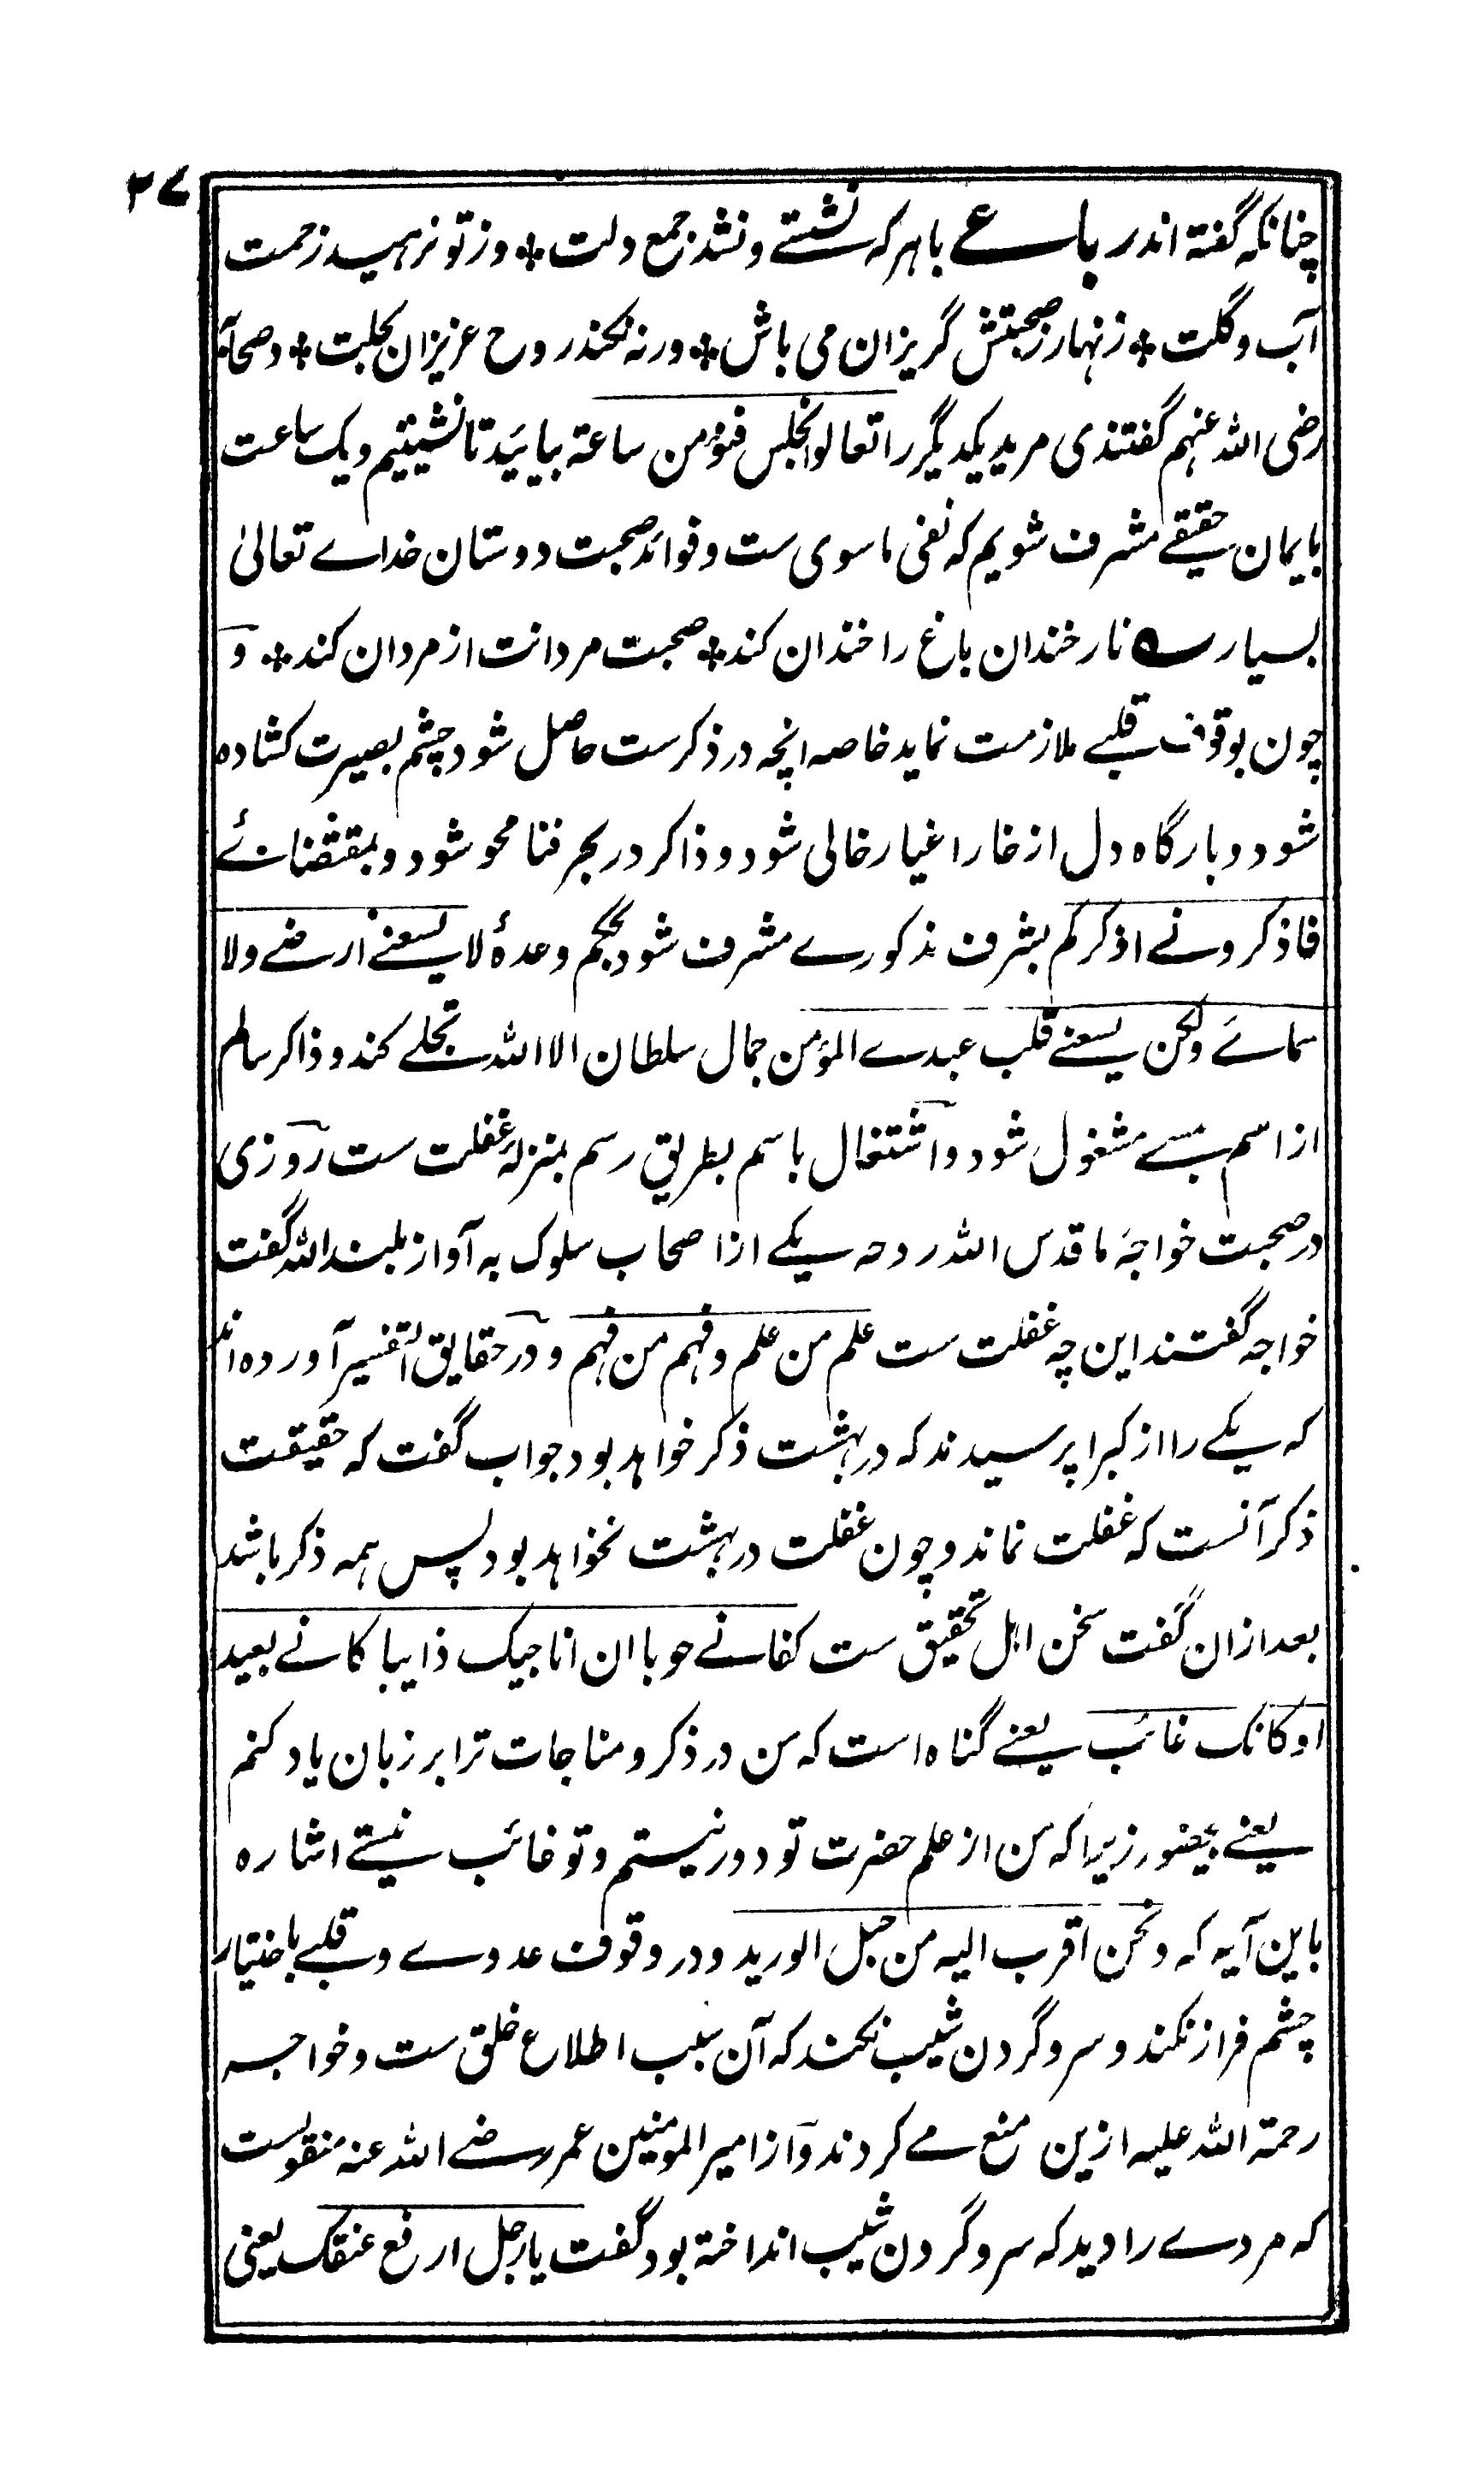 ۳۷
چنانکه گفته اند رباعے باهر که نشستے و نشد جمع دلت * وز تو نرهید زحمت
آب و گلت * زنهار ز صحبتش گریزان می باش * ورنه نکند روح عزیزان بحلت * و صحابه
رضی الله عنهم گفتندی مر یکدیگر را تعالوا نجلس فنؤمن ساعة بیائید تا نشینیم و یک ساعت
بایمان حقیقے مشرف شویم که نفی ماسوی ست و فوائد صحبت دوستان خداے تعالیٰ
بسیارست ه نار خندان باغ را خندان کند * صحبت مردانت از مردان کند * و
چون بوقوف قلبے ملازمت نماید خاصه انچه در ذکرست حاصل شود چشم بصیرت کشاده
شود و بارگاه دل از خار اغیار خالی شود و ذاکر در بحر فنا محو شود و بمقتضائے
فاذکرونے اذکرکم بشرف مذکورے مشرف شود بحکم وعدهٔ لا یسعنے ارضے ولا
سمائے ولکن یسعنے قلب عبدے المؤمن جمال سلطان الا الله تجلے کند و ذاکر سالم
از اسم بمسمے مشغول شود و اشتغال باسم بطریق رسم بمنزلهٔ غفلت ست روزی
در صحبت خواجهٔ ما قدس الله روحه یکے از اصحاب سلوک به آواز بلند الله گفت
خواجه گفتند این چه غفلت ست علم من علم و فهم من فهم و در حقایق التفسیر آورده اند
که یکے را از کبرا پرسیدند که در بهشت ذکر خواهد بود جواب گفت که حقیقت
ذکر آنست که غفلت نماند و چون غفلت در بهشت نخواهد بود پس همه ذکر باشد
بعد ازان گفت سخن اهل تحقیق ست کفانے حوبا ان اناجیک ذایبا کانے بعید
او کانک غائب یعنے گناه است که من در ذکر و مناجات ترا بر زبان یاد کنم
یعنے بیحضور زیرا که من از علم حضرت تو دور نیستم و تو غائب نیستے اشاره
باین آیه که و نحن اقرب الیه من حبل الورید و در وقوف عددے و قلبے باختیار
چشم فراز نکند و سر و گردن شیب نکند که آن سبب اطلاع خلق ست و خواجه
رحمة الله علیه ازین منع مے کردند و از امیر المومنین عمر رضے الله عنه منقولست
که مردے را دید که سر و گردن شیب انداخته بود گفت یا رجل ارفع عنقک یعنی